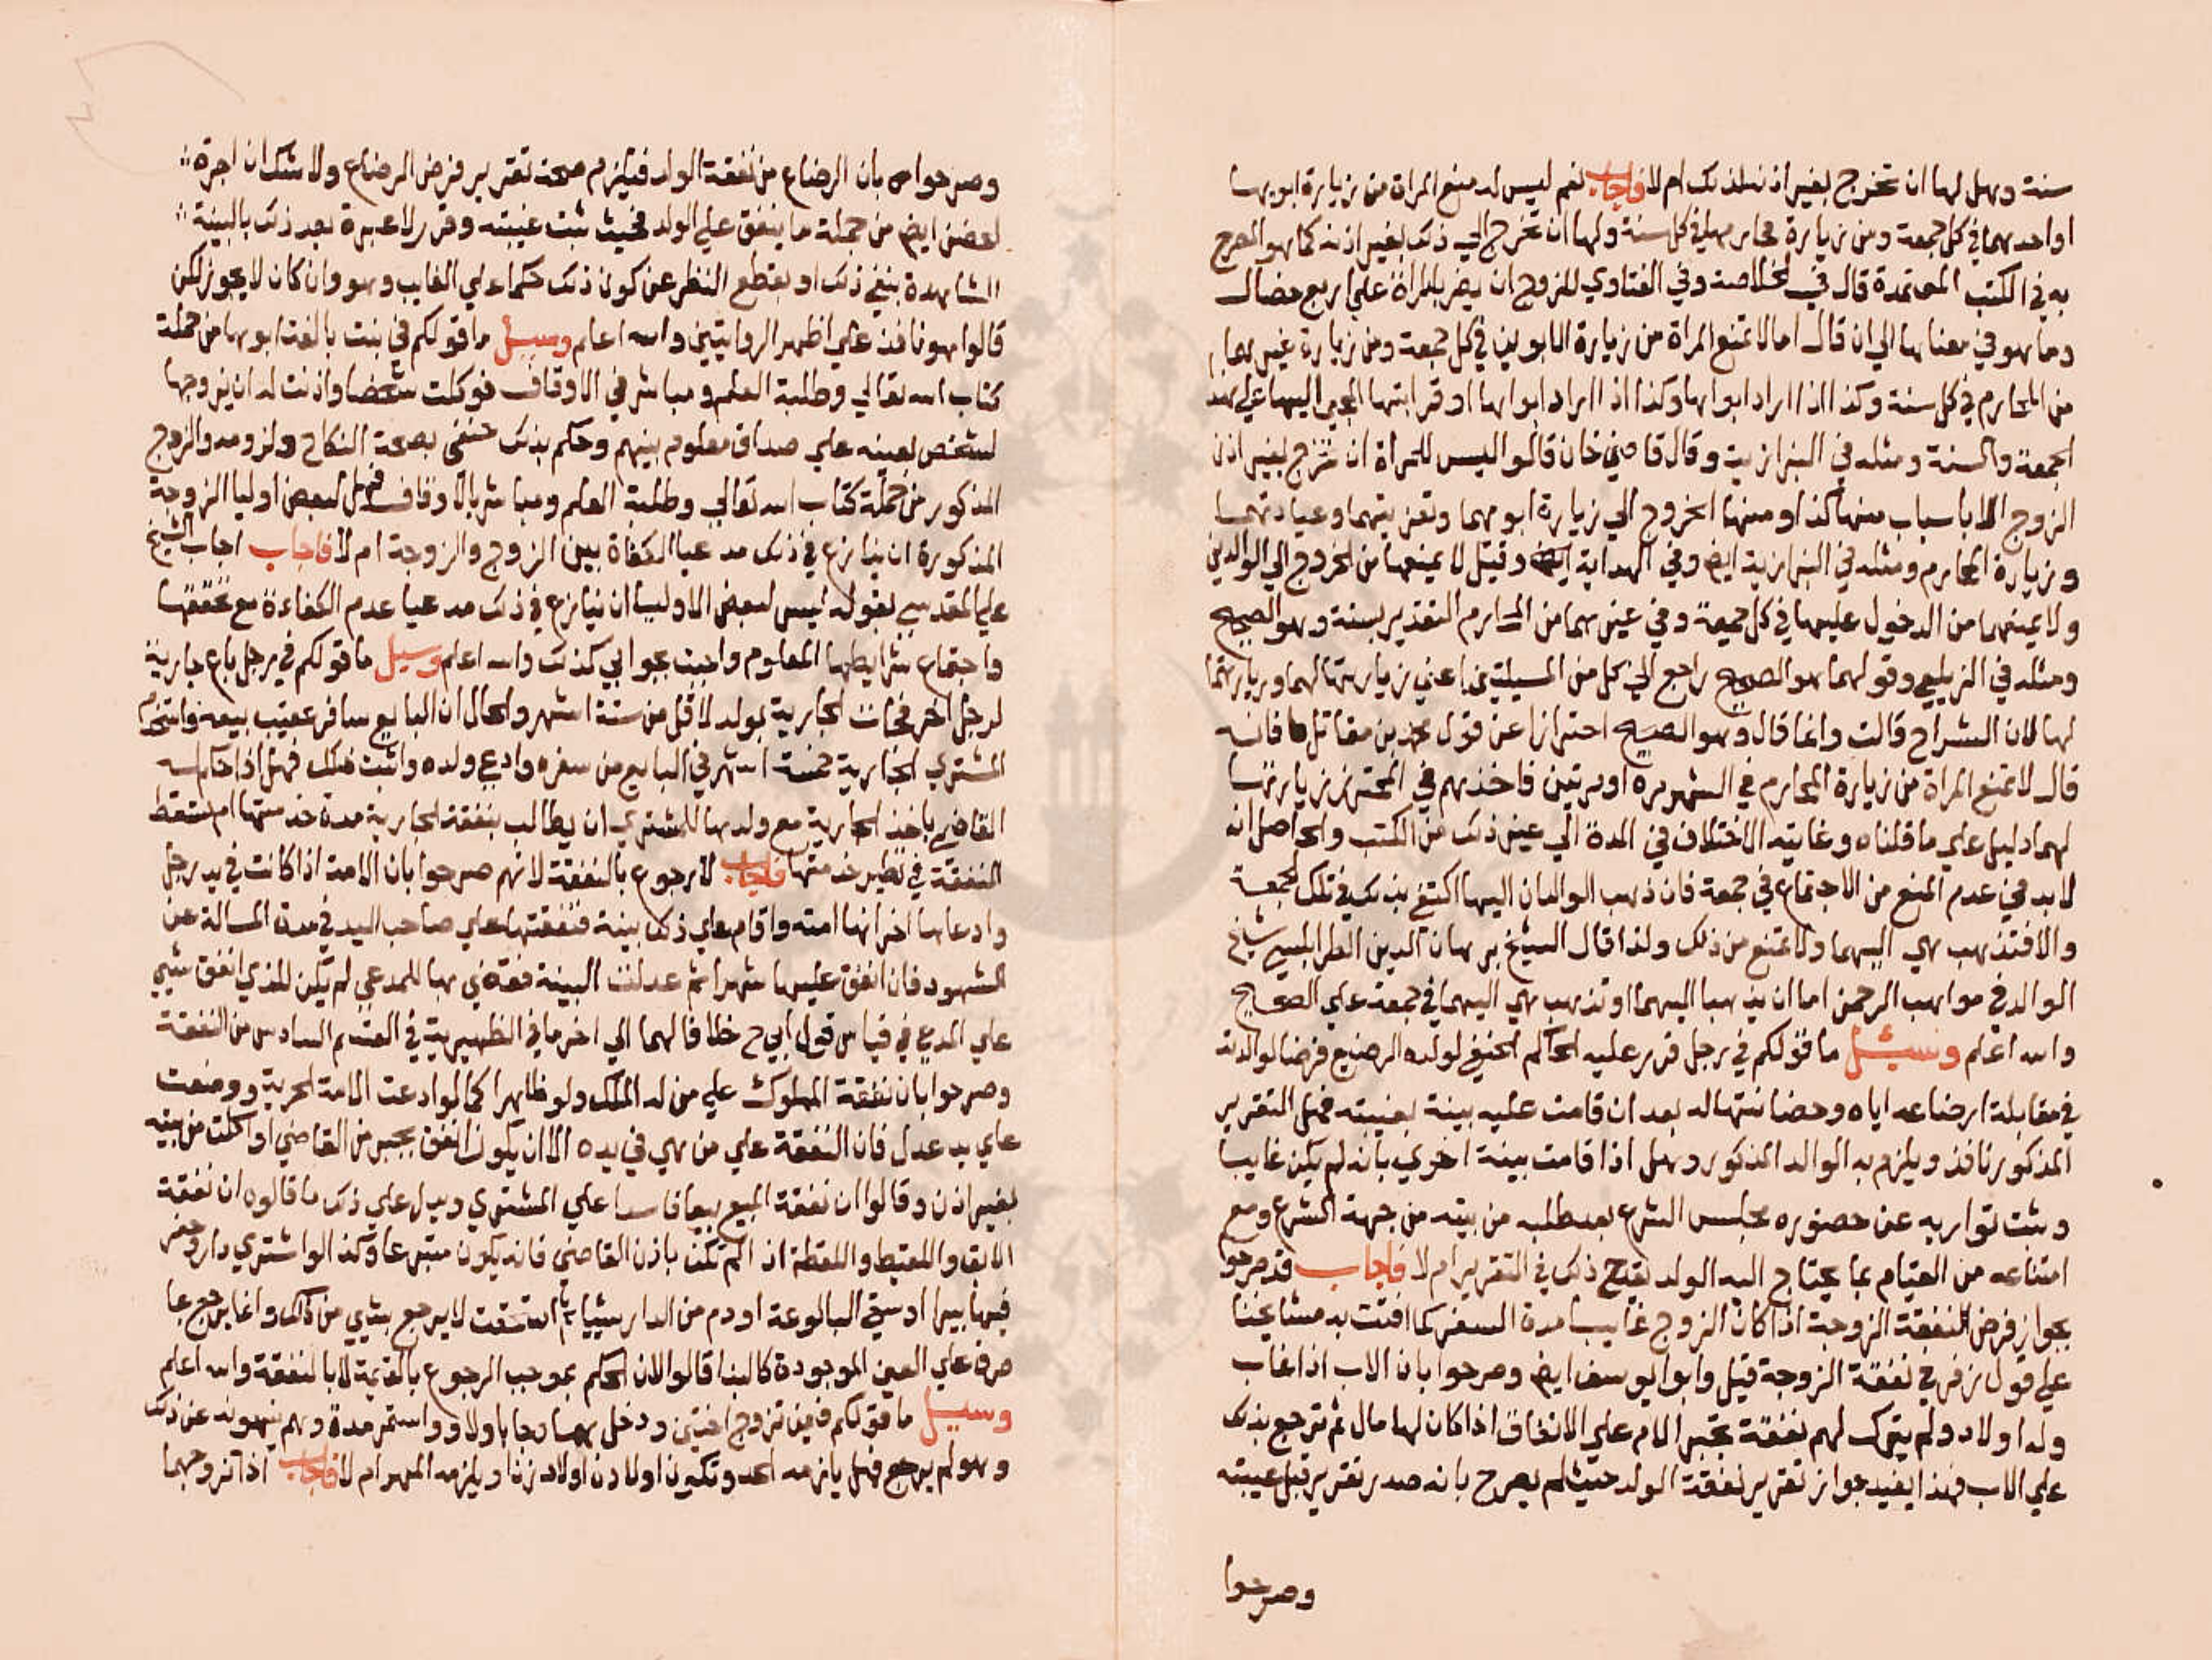 سنة وهل لها ان تخرج بغير اذنه لذلك ام لا فاجاب نعم ليس له منع المراة من زيارة ابويها
او احدهما في كل جمعة ومن زيارة محارمها في كل سنة ولها ان تخرج الي ذلك بغير اذنه كما هو المصرح
به في الكتب المعتمدة قال في الخلاصة وفي الفتاوي للزوج ان يضرب المراة علي اربع خصال
وما هو في معناها الي ان قال اما لا تمنع المراة من زيارة الابوين في كل جمعة ومن زيارة غيرهما
من المحارم في كل سنة وكذا اذا اراد ابواها وكذا اذا اراد ابواها او قرابتها المجي اليها علي هذا
الجمعة والسنة ومثله في البزازية وقال قاضي خان قالوا ليس للمراة ان تخرج بغير اذن
الزوج الا باسباب منها كذا ومنها الخروج الي زيارة ابويها وتعزيتهما وعيادتهما
وزيارة المحارم ومثله في البزازية ايض وفي الهداية ايض وقيل لا يمنعها من الخروج الي الوالدين
ولا يمنعهما من الدخول عليها في كل جمعة وفي غيرهما من المحارم التقدير بسنة وهو الصحيح
ومثله في الزيلعي وقولهما هو الصحيح راجع الي كل من المسيلتين اعني زيارتها لهما وزيارتهما
لها لان الشراح قالت وانما قال وهو الصحيح احترازا عن قول محمد بن مقاتل فانه
قال لا تمنع المراة من زيارة المحارم في الشهر مرة او مرتين فاخذهم في المحترز زيارتها
لهما دليل علي ما قلناه وغايته الاختلاف في المدة الي غير ذلك من الكتب والحاصل انه
لا بد في عدم المنع من الاجتماع في جمعة فان ذهب الوالدان اليها اكتفي بذلك في تلك الجمعة
والا فتذهب هي اليهما ولا تمنع من ذلك ولذا قال الشيخ برهان الدين الطرابلسي شيخ
الوالد في مواهب الرحمن اما ان يذهبا اليها او تذهب هي اليهما في جمعة علي الصحيح
والله اعلم وسئل ما قولكم في رجل قرر عليه الحاكم الحنفي لولده الرضيع فرضا لوالدته
في مقابلة ارضاعه اياه وحضانتها له بعد ان قامت عليه بينة بغيبته فهل التقرير
المذكور نافذ ويلزم به الوالد المذكور وهل اذا قامت بينة اخري بانه لم يكن غايبا
وثبت تواريه عن حضوره مجلس الشرع بعد طلبه من بيته من جهة الشرع ومع
امتناعه من القيام بما يحتاج اليه الولد يقدح ذلك في التقرير ام لا فاجاب قد صرحوا
بجواز فرض النفقة الزوجة اذا كان الزوج غايبا مدة السفر كما افتت به مشايخنا
علي قول زفر في نفقة الزوجة قيل وابو يوسف ايض وصرحوا بان الاب اذا غاب
وله اولاد ولم يترك لهم نفقة تجبر الام علي الانفاق اذا كان لها مال ثم ترجع بذلك
علي الاب فهذا يفيد جواز تقرير نفقة الولد حيث لم يصرح بانه صدر تقرير قبل غيبته
وصرحوا
وصرحوا بان الرضاع من نفقة الولد فيلزم صحة تقرير فرض الرضاع ولا شك ان اجرة
ايض من جملة ما ينفق علي الولد فحيث ثبت غيبته وقرر لا عبرة بعد ذلك بالبينة
الشاهدة بنفي ذلك او بقطع النظر عن كون ذلك حكما علي الغايب وهو وان كان لا يجوز لكن
قالوا هو نافذ علي اظهر الروايتين والله اعلم وسيل ما قولكم في بنت بالغة ابوها من حملة
كتاب الله تعالي وطلبة العلم ومباشر في الاوقاف فوكلت شخصا واذنت له ان يزوجها
لشخص بعينه علي صداق معلوم بينهم وحكم بذلك حنفي بصحة النكاح ولزومه والزوج
المذكور من حملة كتاب الله تعالي وطلبة العلم ومباشر بالاوقاف فهل لبعض اوليا الزوجة
المذكورة ان ينازع في ذلك مدعيا الكفاة بين الزوج والزوجة ام لا فاجاب اجاب الشيخ
علي المقدسي بقوله ليس لبعض الاوليا ان ينازع في ذلك مدعيا عدم الكفاءة مع تحققها
واجتماع شرايطها المعلوم واجبت بجوابي كذلك والله اعلم وسيل ما قولكم في رجل باع جارية
لرجل اخر فجات الجارية بولد لاقل من ستة اشهر والحال ان البايع سافر عقيب بيعه فاستخدم
المشتري الجارية خمسة اشهر في البايع من سفره وادعي ولده واثبت ذلك فهل اذا حكم له
القاضي باخذ الجارية مع ولدها للمشتري ان يطالب بنفقة الجارية مدة خدمتها ام تسقط
النفقة في نظير خدمتها فاجاب لا رجوع بالنفقة لانهم صرحوا بان الامة اذا كانت في يد رجل
وادعاها اخر انها امته واقام علي ذلك بينة فنفقتها علي صاحب اليد في مدة المسالة عن
الشهود فان انفق عليها شهرا ثم عدلت البينة فقضي بها للمدعي لم يكن للذي انفق شيي
علي المدعي في قياس قول ابي ح خلافا لهما الي اخر ما في الظهيرية في القسم السادس من النفقة
وصرحوا بان نفقة المملوك علي من له الملك ولو ظاهرا كما لو ادعت الامة الحرية ووضعت
علي يد عدل فان النفقة علي من هي في يده الا ان يكون انفق بجبر من القاضي او اكلت من بيته
بغير اذن وقالوا ان نفقة المبيع بيعا فاسدا علي المشتري ويدل علي ذلك ما قالوه ان نفقة
الابق واللقيط واللقطة اذا لم تكن باذن القاضي فانه يكون متبرعا وكذا لو اشتري دارا وحفر
فيها بيرا او نقي البالوعة او رم من الدار شييا ثم استحقت لا يرجع بشيي من ذلك وانما يرجع بما
صرف علي العين الموجودة كالبنا قالوا لان الحكم بموجب الرجوع بالقيمة لا بالنفقة والله اعلم
وسيل ما قولكم فيمن تزوج اختين ودخل بهما وجا باولاد واستمر مدة وهم ينهونه عن ذلك
وهو لم يرجع فهل يلزمه الحد وتكون اولاده اولاد زنا ويلزمه المهر ام لا فاجاب اذا تزوجهما